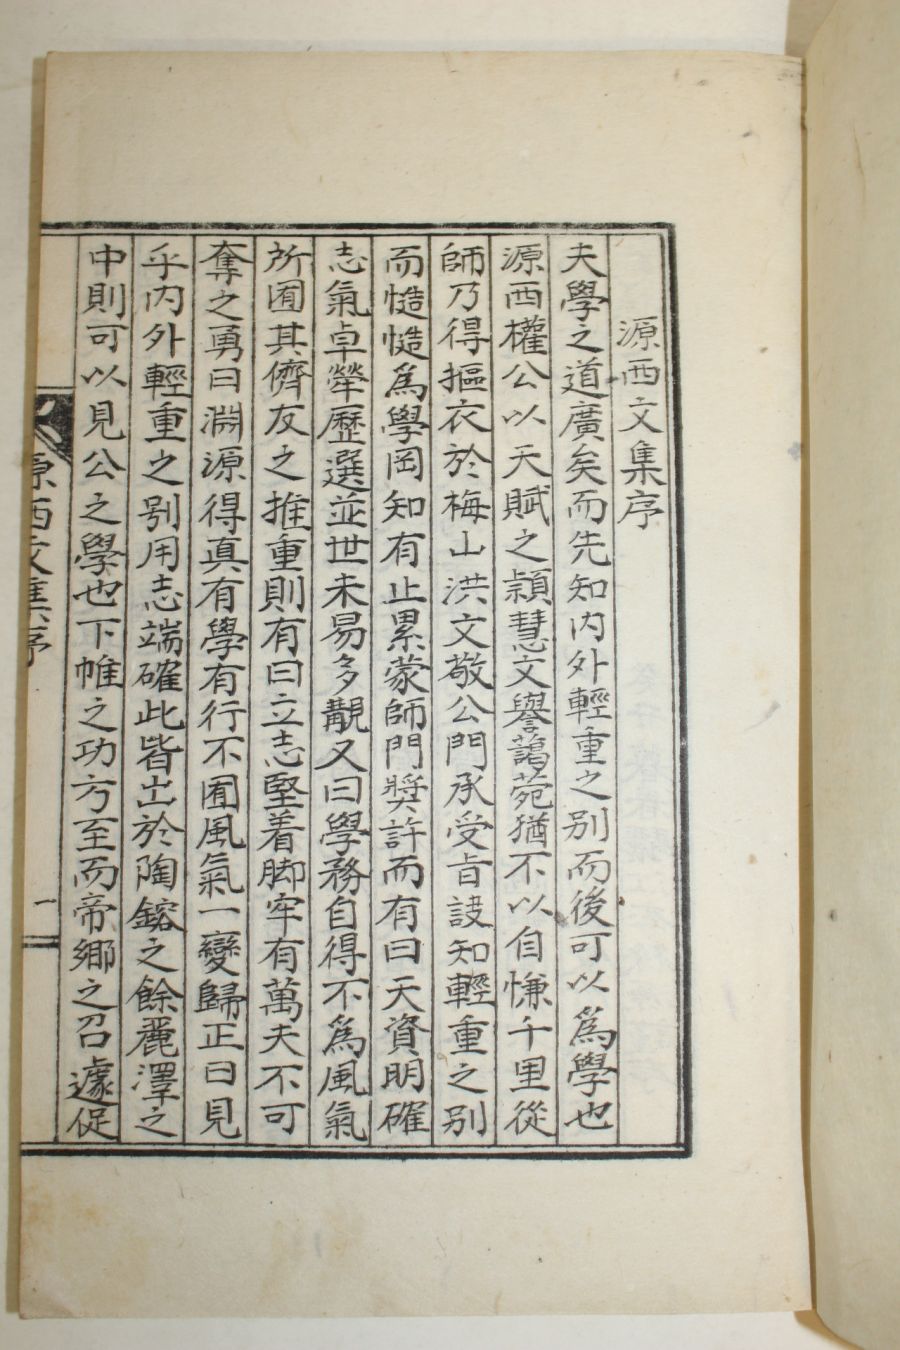 源西文集序
夫學之道廣矣而先知內外輕重之別而後可以爲學也
源西權公以天賦之穎慧文譽藹菀猶不以自慊千里從
師乃得摳衣於梅山洪文敬公門承受旨訣知輕重之別
而慥慥爲學罔知有止累蒙師門奬許而有曰天資明確
志氣卓犖歷選並世未易多覯又曰學務自得不爲風氣
所囿其儕友之推重則有曰立志堅着脚牢有萬夫不可
奪之勇曰淵源得真有學有行不囿風氣一變歸正曰見
乎內外輕重之別用志端確此皆出於陶鎔之餘麗澤之
中則可以見公之學也下帷之功方至而帝鄉之召遽促
源西文集序
一